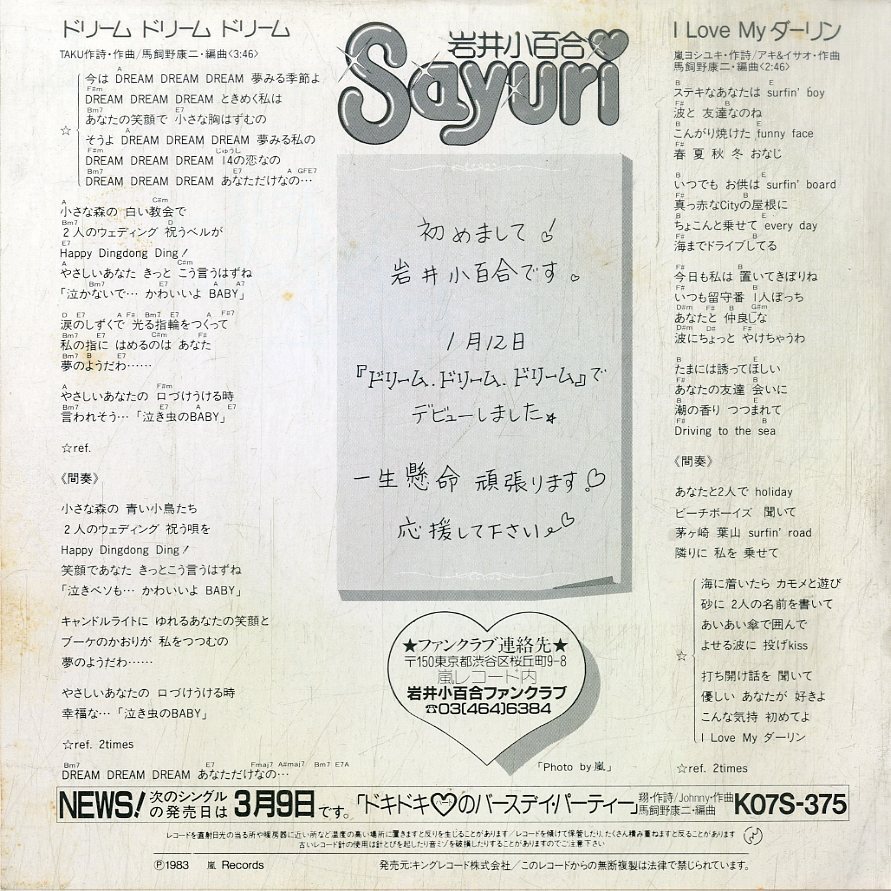 ドリーム ドリーム ドリーム
TAKU作詩・作曲/馬飼野康二・編曲〈3:46〉
☆
A
今は DREAM DREAM DREAM 夢みる季節よ
F#m
DREAM DREAM DREAM ときめく私は
Bm7 E7
あなたの笑顔で 小さな胸はずむの
A
そうよ DREAM DREAM DREAM 夢みる私の
F#m じゅうし
DREAM DREAM DREAM 14の恋なの
Bm7 E7 A GFE7
DREAM DREAM DREAM あなただけなの…
A C#m
小さな森の 白い教会で
Bm7 D
2人のウェディング 祝うベルが
E7
Happy Dingdong Ding!
A C#m
やさしいあなた きっと こう言うはずね
Bm7 E7 A A7
「泣かないで… かわいいよ BABY」
D E7 A F# Bm7 E7 A F#7
涙のしずくで 光る指輪をつくって
Bm7 E7 C#m F#
私の指に はめるのは あなた
Bm7 B E7
夢のようだわ……
A F#m
やさしいあなたの 口づけうける時
Bm7 E7 A E7
言われそう…「泣き虫のBABY」
☆ref.
《間奏》
小さな森の 青い小鳥たち
2人のウェディング 祝う唄を
Happy Dingdong Ding!
笑顔であなた きっとこう言うはずね
「泣きベソも… かわいいよ BABY」
キャンドルライトに ゆれるあなたの笑顔と
ブーケのかおりが 私をつつむの
夢のようだわ……
やさしいあなたの 口づけうける時
幸福な…「泣き虫のBABY」
☆ref. 2times
E7 Fmaj7 A#maj7 Bm7 E7A
DREAM DREAM DREAM あなただけなの…
岩井小百合
Sayuri
初めまして!
岩井小百合です。
1月12日
『ドリーム.ドリーム.ドリーム』で
デビューしました☆
一生懸命 頑張ります!♡
応援して下さい♡
★ファンクラブ連絡先★
〒150東京都渋谷区桜丘町9-8
嵐レコード内
岩井小百合ファンクラブ
☎03(464)6384
「Photo by 嵐」
I Love My ダーリン
嵐ヨシユキ・作詩/アキ&イサオ・作曲
馬飼野康二・編曲〈2:46〉
B E
ステキなあなたは surfin' boy
F# B
波と 友達なのね
B E
こんがり焼けた funny face
F#
春 夏 秋 冬 おなじ
B E
いつでも お供は surfin' board
F# B
真っ赤なCityの屋根に
B E
ちょこんと乗せて every day
F# B
海までドライブしてる
F# B
今日も私は 置いてきぼりね
F# B
いつも留守番 1人ぼっち
D#m B G#m
あなたと 仲良しな
D#m D# F#
波にちょっと やけちゃうわ
B E
たまには誘ってほしい
F# B
あなたの友達 会いに
B E
潮の香り つつまれて
F# B
Driving to the sea
《間奏》
あなたと2人で holiday
ビーチボーイズ 聞いて
茅ヶ崎 葉山 surfin' road
隣りに 私を 乗せて
☆
海に着いたら カモメと遊び
砂に 2人の名前を書いて
あいあい傘で囲んで
よせる波に 投げkiss
打ち開け話を 聞いて
優しい あなたが 好きよ
こんな気持 初めてよ
I Love My ダーリン
☆ref. 2times
NEWS! 次のシングルの発売日は3月9日です。「ドキドキ♡のバースデイ・パーティー」 翔・作詩/Johnny・作曲 馬飼野康二・編曲 K07S-375
レコードを直射日光の当る所や暖房器に近い所など温度の高い場所に置きますと反りを生じることがあります/レコードを傾けて保管したり、たくさん積み重ねますと反ることがあります
古いレコード針の使用は針とびを起したり音ミゾを破損したりすることがありますのでご注意下さい
Ⓟ1983 嵐 Records 発売元:キングレコード株式会社/このレコードからの無断複製は法律で禁じられています。